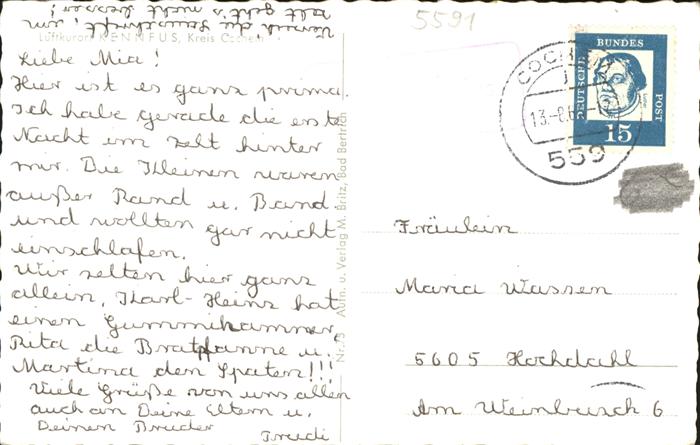 Verzeih die Sauschrift, im
Zelt geht's nicht besser!
5591
Luftkurort KENNFUS, Kreis Cochem
Liebe Mia!
Hier ist es ganz prima.
Ich habe gerade die erste
Nacht im Zelt hinter
mir. Die Kleinen waren
außer Rand u. Band
und wollten gar nicht
einschlafen.
Wir zelten hier ganz
allein, Karl-Heinz hat
einen Gummihammer,
Rita die Bratpfanne u.
Martina den Spaten!!!
Viele Grüße von uns allen
auch an Deine Eltern u.
Deinen Bruder
Trudi
Nr. 75 Aufn. u. Verlag M. Britz, Bad Bertrich
COCHEM
13.-8.6
559
DEUTSCHE
BUNDES
POST
15
Fräulein
Maria Wassen
5605 Hochdahl
Am Weinbusch 6